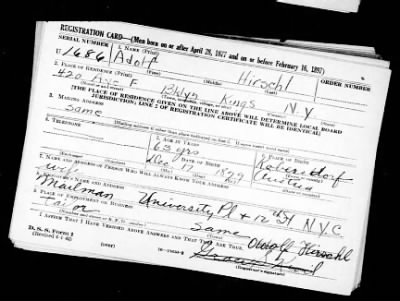 REGISTRATION CARD—(Men born on or after April 28, 1877 and on or before February 16, 1897)
SERIAL NUMBER
1. NAME (Print)
ORDER NUMBER
U 1686
Adolf Hirschl
(First) (Middle) (Last)
2. PLACE OF RESIDENCE (Print)
420 Ave F Bklyn Kings N.Y
[THE PLACE OF RESIDENCE GIVEN ON THE LINE ABOVE WILL DETERMINE LOCAL BOARD
JURISDICTION; LINE 2 OF REGISTRATION CERTIFICATE WILL BE IDENTICAL]
3. MAILING ADDRESS
Same
4. TELEPHONE
5. AGE IN YEARS
6. PLACE OF BIRTH
63 yrs
DATE OF BIRTH
Dec 17 1879
Austria
7. NAME AND ADDRESS OF PERSON WHO WILL ALWAYS KNOW YOUR ADDRESS
wife
8. EMPLOYER'S NAME AND ADDRESS
Mailman University Pl & 12th St N.Y.C.
9. PLACE OF EMPLOYMENT OR BUSINESS
Tailor Same
I AFFIRM THAT I HAVE VERIFIED ABOVE ANSWERS AND THAT THEY ARE TRUE.
Adolf Hirschl
D. S. S. Form 1
(Revised 4-1-42)
(over)